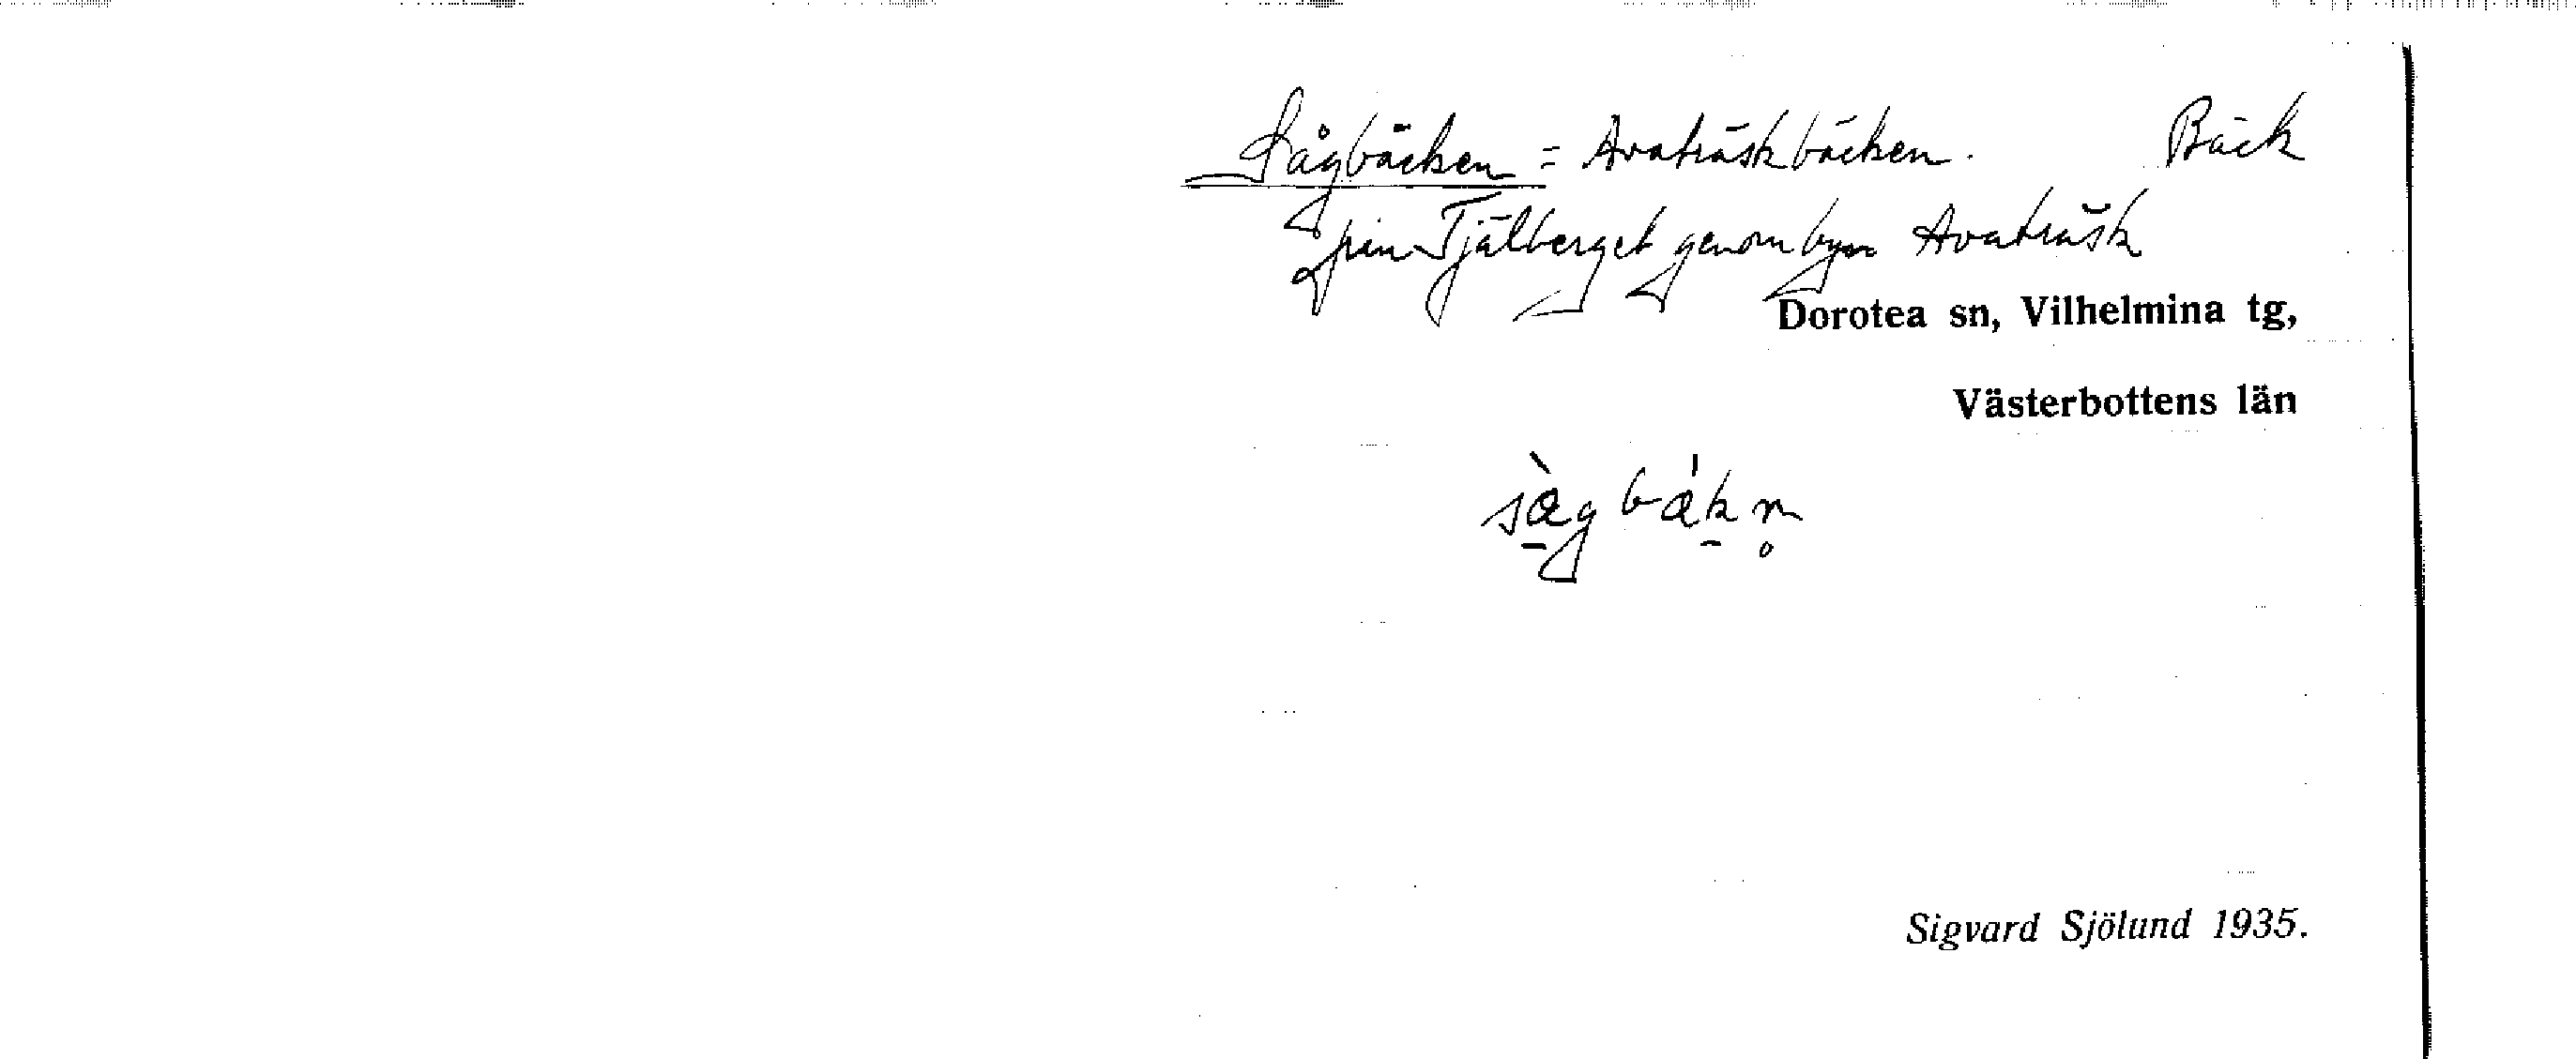 Sågbäcken = Avaträskbäcken. Bäck
från Tjälberget genom byn Avaträsk
Dorotea sn, Vilhelmina tg,
Västerbottens län
sàg bák n̥
Sigvard Sjölund 1935.